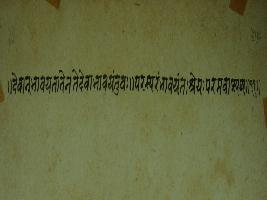 ॥देवान्भावयतानेन तेदेवाभावयंतुवः॥परस्परंभावयंतःश्रेयःपरमवाप्स्यथ॥११॥